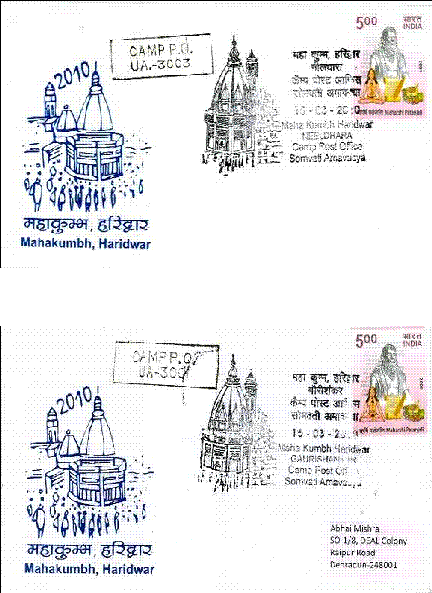 CAMP P.O.
UA.-3003
2010
महाकुम्भ, हरिद्वार
Mahakumbh, Haridwar
महा कुम्भ, हरिद्वार
नीलधारा
कैम्प पोस्ट आफिस
सोमवती अमावस्या
15-03-2010
Maha Kumbh Haridwar
NEELDHARA
Camp Post Office
Somvati Amavasya
5.00
भारत
INDIA
Maharshi Patanjali
CAMP P.O.
2010
महाकुम्भ, हरिद्वार
Mahakumbh, Haridwar
महा कुम्भ, हरिद्वार
गौरीशंकर
कैम्प पोस्ट
सोमवती
15-03-
Maha Kumbh Haridwar
Camp Post
Somvati Amavasya
5.00
भारत
INDIA
Maharshi Patanjali
Abhai Mishra
SO 1/8, DEAL Colony
Raipur Road
Dehradun-248001